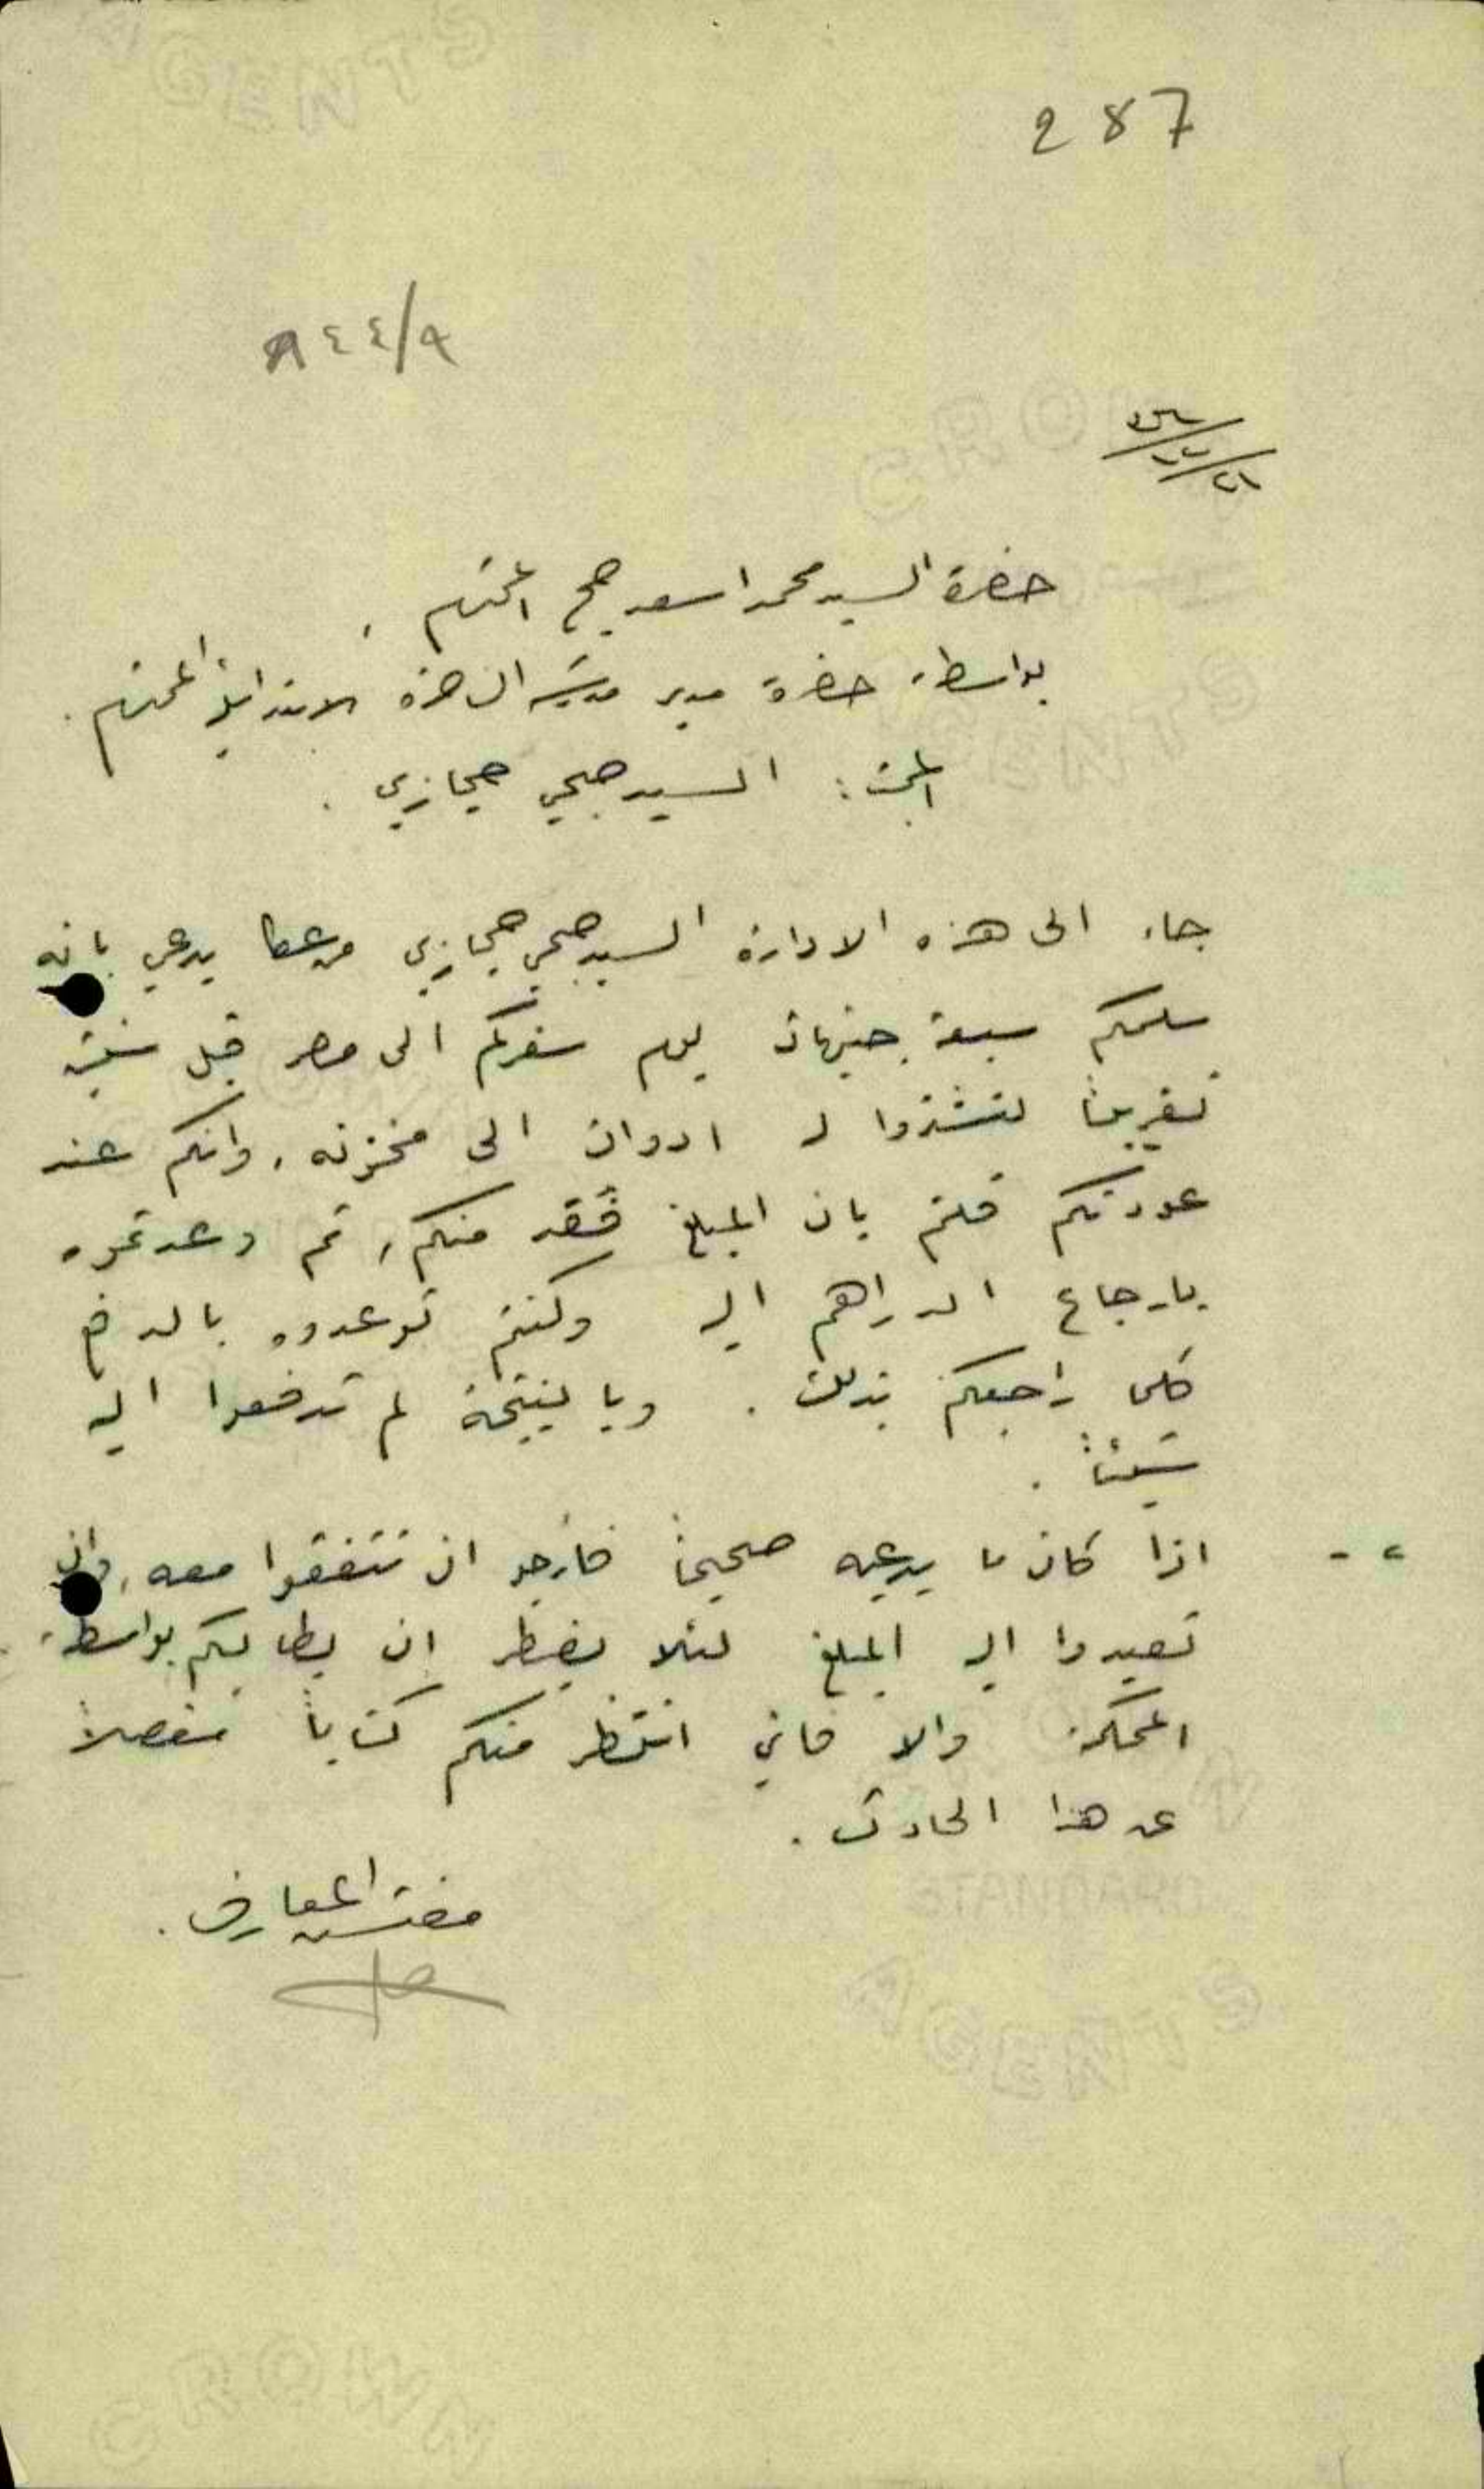 287
٩/٤٤٩
حضرة السيد محمد اسعد المحترم ،
بواسطة حضرة مدير مدرسة الناصرة الابتدائية المحترم .
المبحث : السيد صبحي حجازي .
جاء الى هذه الادارة السيد صبحي حجازي يدعي بانه
سلمكم سبعة جنيهات يوم سفركم الى مصر قبل سنتين
تقريباً لتشتروا له ادوات الى مخزنه ، وانكم عند
عودتكم قلتم بان المبلغ فُقد منكم ، ثم وعدتموه
بارجاع الدراهم اليه وكنتم توعدوه بالدفع
كلما راجعكم بذلك . وبالنتيجة لم تدفعوا اليه
شيئاً .
٢ - اذا كان ما يدعيه صحيحاً فأرجو ان تتفقوا معه ، وان
تعيدوا اليه المبلغ لئلا يضطر ان يطالبكم بواسطة
المحكمة والا فاني انتظر منكم كتاباً مفصلاً
عن هذا الحادث .
مفتش المعارف .
CROWN
AGENTS
STANDARD